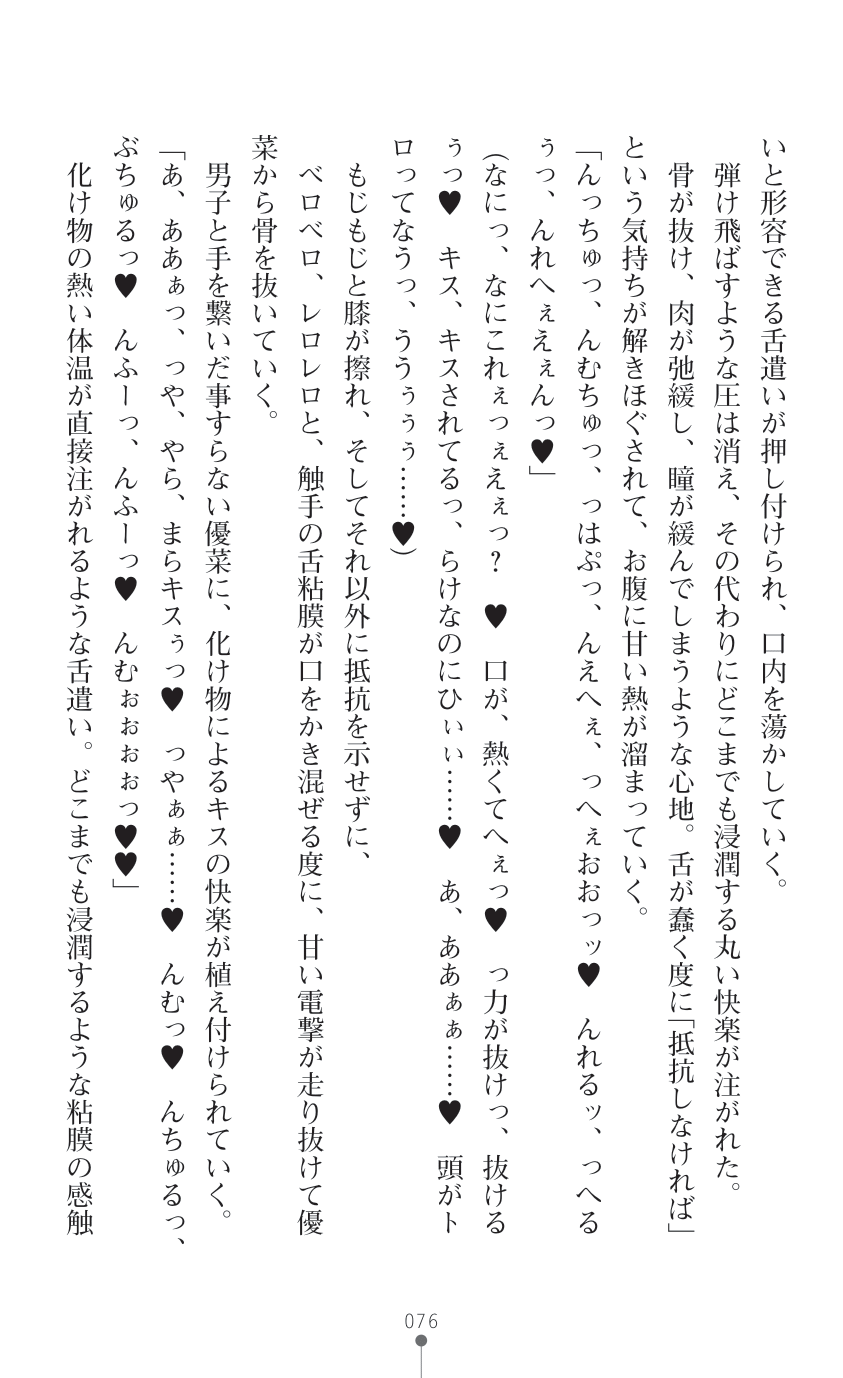 いと形容できる舌遣いが押し付けられ、口内を蕩かしていく。
弾け飛ばすような圧は消え、その代わりにどこまでも浸潤する丸い快楽が注がれた。
骨が抜け、肉が弛緩し、瞳が緩んでしまうような心地。舌が蠢く度に「抵抗しなければ」
という気持ちが解きほぐされて、お腹に甘い熱が溜まっていく。
「んっちゅっ、んむちゅっ、っはぷっ、んえへぇ、っへぇおおっッ♥　んれるッ、っへる
ぅっ、んれへぇえぇんっ♥」
(なにっ、なにこれぇっぇえぇっ？　♥　口が、熱くてへぇっ♥　っ力が抜けっ、抜ける
ぅっ♥　キス、キスされてるっ、らけなのにひぃぃ……♥　あ、ああぁぁ……♥　頭がト
ロってなうっ、ううぅぅぅ……♥)
もじもじと膝が擦れ、そしてそれ以外に抵抗を示せずに、
ベロベロ、レロレロと、触手の舌粘膜が口をかき混ぜる度に、甘い電撃が走り抜けて優
菜から骨を抜いていく。
男子と手を繋いだ事すらない優菜に、化け物によるキスの快楽が植え付けられていく。
「あ、ああぁっ、っや、やら、まらキスぅっ♥　っやぁぁ……♥　んむっ♥　んちゅるっ、
ぶちゅるっ♥　んふーっ、んふーっ♥　んむぉぉぉぉっ♥♥」
化け物の熱い体温が直接注がれるような舌遣い。どこまでも浸潤するような粘膜の感触
076